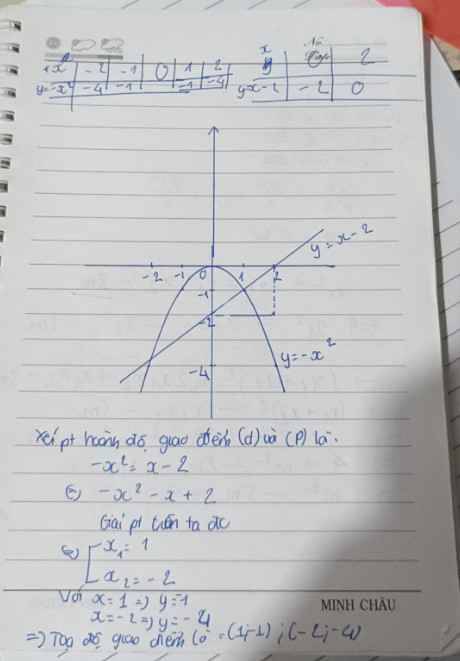 x -2 -1 0 1 2
y=-x² -4 -1 -1 -4
x 2
y=x-2 -2 0
y=x-2
-2 -1 0 1 2
-1
-2
y=-x²
-4
Xét pt hoành độ giao điểm (d) và (P) là:
-x² = x - 2
⇔ -x² - x + 2
Giải pt trên ta đc
⇔ x₁ = 1
x₂ = -2
Với x = 1 => y = -1
MINH CHÂU
x = -2 => y = -4
=> Toạ độ giao điểm là = (1;-1) ; (-2;-4)